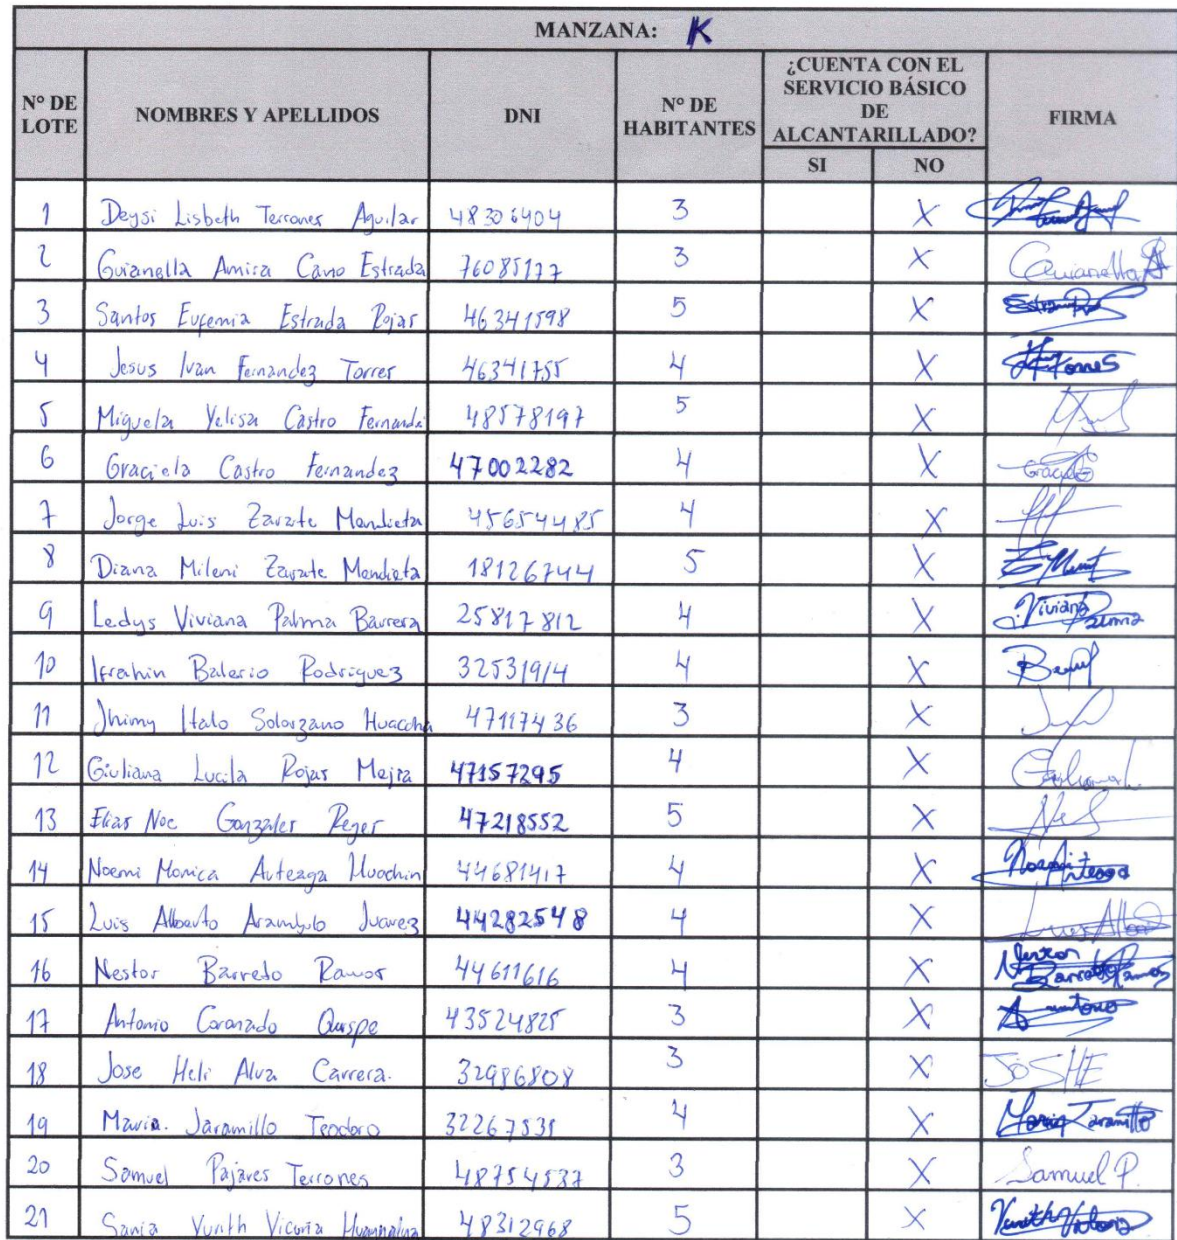 MANZANA: K
N° DE LOTE NOMBRES Y APELLIDOS DNI N° DE HABITANTES ¿CUENTA CON EL SERVICIO BÁSICO DE ALCANTARILLADO? FIRMA
SI NO
1 Deysi Lisbeth Terrones Aguilar 48306404 3 X
2 Guianella Amira Cano Estrada 76085177 3 X Guianella
3 Santos Eufemia Estrada Rojas 46341598 5 X
4 Jesus Ivan Fernandez Torres 46341755 4 X Torres
5 Miguela Yelisa Castro Fernande 48578197 5 X
6 Graciela Castro Fernandez 47002282 4 X
7 Jorge Luis Zarate Mendieta 45654485 4 X
8 Diana Mileni Zarate Mendieta 18126744 5 X
9 Ledys Viviana Palma Barrera 25817812 4 X Viviana Palma
10 Ifrahin Balerio Rodriguez 32531914 4 X
11 Jhimy Italo Solorzano Huaccha 47117436 3 X
12 Giuliana Lucila Rojas Mejia 47157295 4 X
13 Elias Noe Gonzales Reyes 47218552 5 X
14 Noemi Monica Arteaga Huachin 44681417 4 X
15 Luis Alberto Arambulo Juarez 44282548 4 X
16 Nestor Barreto Ramos 44611616 4 X Nestor Barreto Ramos
17 Antonio Coronado Quispe 43524825 3 X
18 Jose Heli Alva Carrera. 32986808 3 X JOSHE
19 Maria. Jaramillo Teodoro 32267531 4 X Maria Jaramillo
20 Samuel Pajares Terrones 48754537 3 X Samuel P.
21 Sania Yunith Vicuña 48312968 5 X